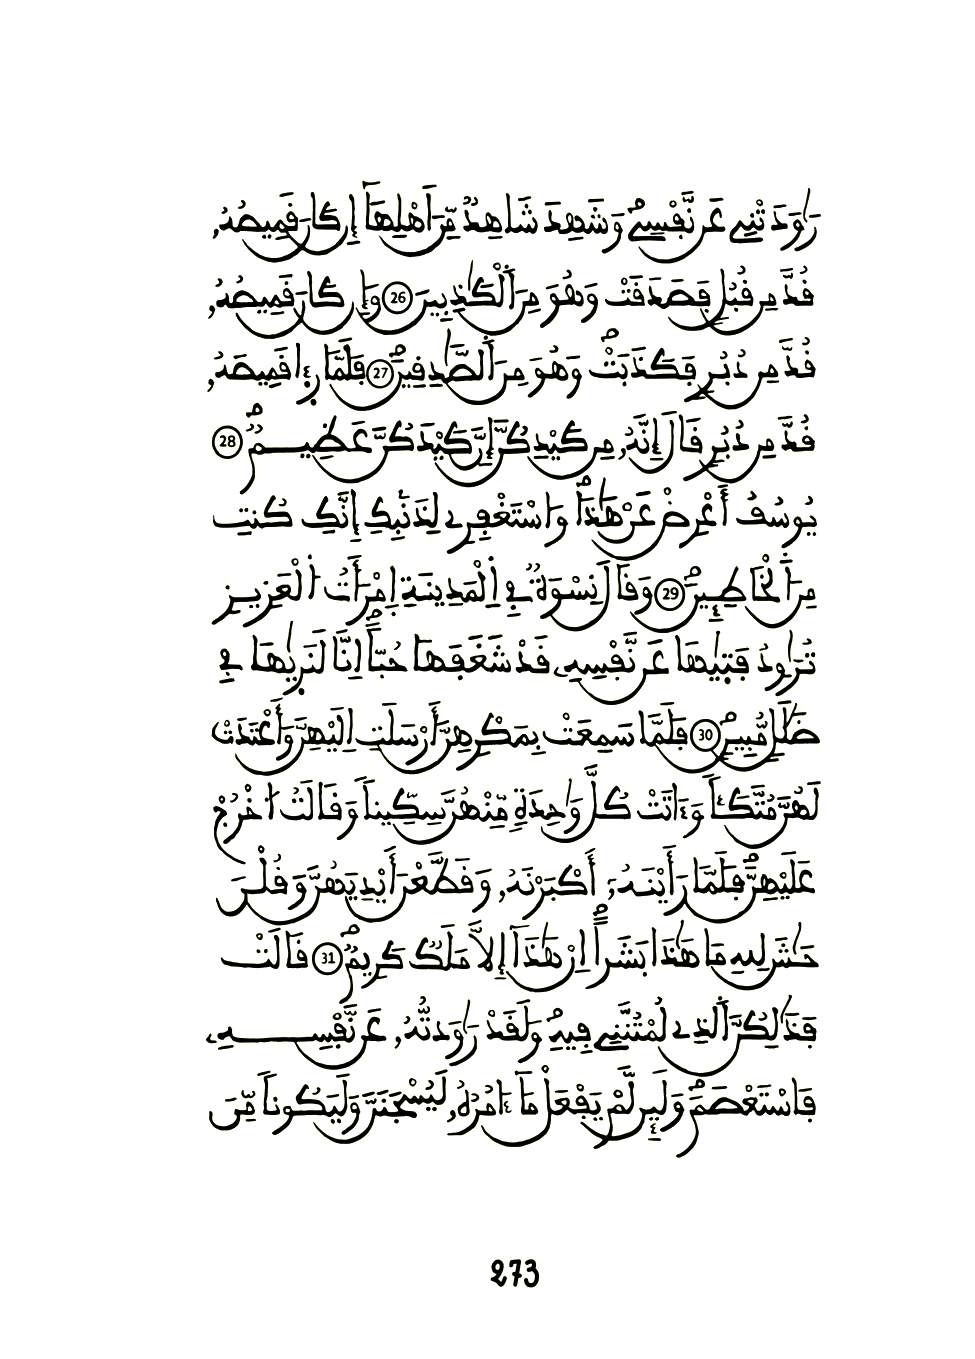 رَٰوَدَتْنِے عَن نَّفْسِےۖ وَشَهِدَ شَاهِدٞ مِّنَ اَهْلِهَآ إِن كَانَ قَمِيصُهُۥ
قُدَّ مِن قُبُلٖ فَصَدَقَتْ وَهُوَ مِنَ اَ۬لْكَٰذِبِينَ 26 وَإِن كَانَ قَمِيصُهُۥ
قُدَّ مِن دُبُرٖ فَكَذَبَتْۖ وَهُوَ مِنَ اَ۬لصَّٰدِقِينَۖ 27 فَلَمَّا رِءٜا قَمِيصَهُۥ
قُدَّ مِن دُبُرٖ قَالَ إِنَّهُۥ مِن كَيْدِكُنَّ إِنَّ كَيْدَكُنَّ عَظِيمٞۖ 28
يُوسُفُ أَعْرِضْ عَنْ هَٰذَاۖ وَاسْتَغْفِرِے لِذَنۢبِكِ إِنَّكِ كُنتِ
مِنَ اَ۬لْخَاطِـِٕينَۖ 29 وَقَالَ نِسْوَةٞ فِے اِ۬لْمَدِينَةِ اِمْرَأَتُ اُ۬لْعَزِيزِ
تُرَٰوِدُ فَتٜيٰهَا عَن نَّفْسِهِۦ قَدْ شَغَفَهَا حُبّاًۖ اِنَّا لَنَرٜيٰهَا فِے
ضَلَٰلٖ مُّبِينٖۖ 30 فَلَمَّا سَمِعَتْ بِمَكْرِهِنَّ أَرْسَلَتِ اِلَيْهِنَّ وَأَعْتَدَتْ
لَهُنَّ مُتَّكَـٔاٗ وَءَاتَتْ كُلَّ وَٰحِدَةٖ مِّنْهُنَّ سِكِّيناٗ وَقَالَتُ اُ۟خْرُجْ
عَلَيْهِنَّۖ فَلَمَّا رَأَيْنَهُۥٓ أَكْبَرْنَهُۥ وَقَطَّعْنَ أَيْدِيَهُنَّ وَقُلْنَ
حَٰشَ لِلهِ مَا هَٰذَا بَشَراًۖ اِنْ هَٰذَآ إِلَّا مَلَكٞ كَرِيمٞۖ 31 قَالَتْ
فَذَٰلِكُنَّ اَ۬لذِے لُمْتُنَّنِے فِيهِۖ وَلَقَدْ رَٰوَدتُّهُۥ عَن نَّفْسِهِۦ
فَاسْتَعْصَمَۖ وَلَئِن لَّمْ يَفْعَلْ مَآ ءَامُرُهُۥ لَيُسْجَنَنَّ وَلَيَكُوناٗ مِّنَ
273